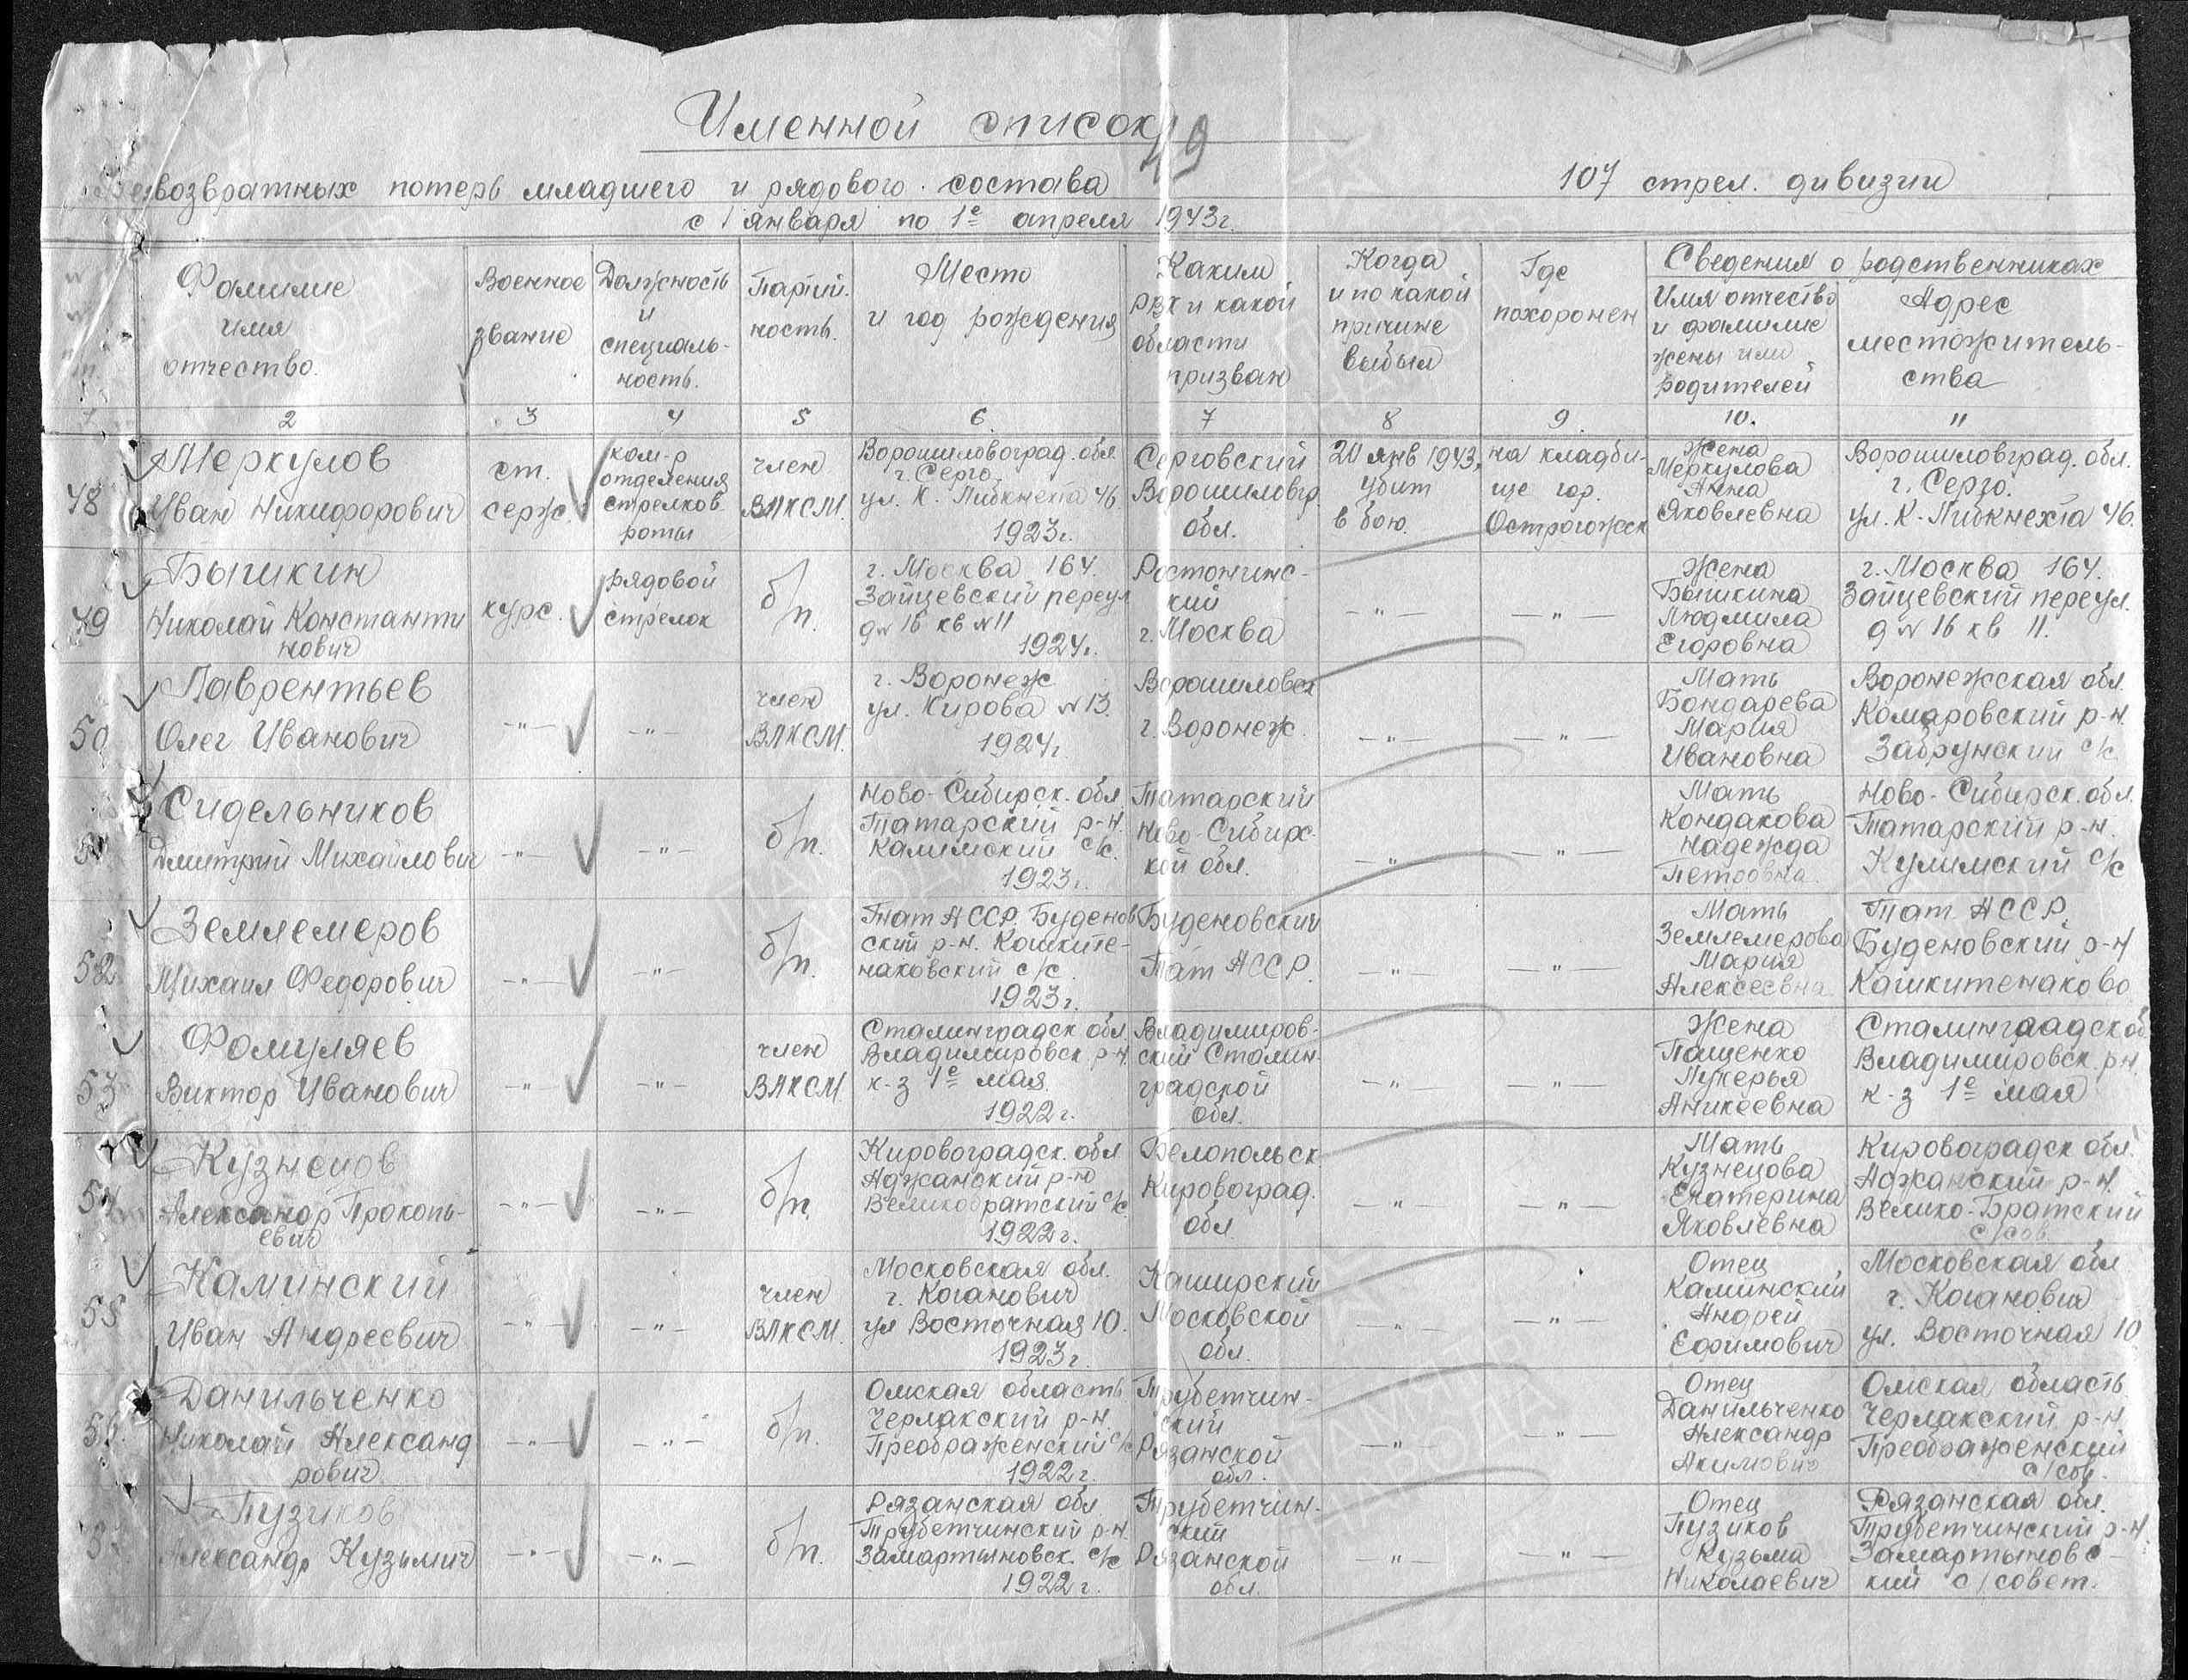 Именной список
49
Безвозвратных потерь младшего и рядового состава 107 стрел. дивизии
с 1 января по 1е апреля 1943г.
Фамилие имя отчество.
Военное звание
Должность и специаль-ность.
Партий.ность.
Место и год рождения
Каким РВК и какой области призван
Когда и по какой причине выбыл
Где похоронен
Сведения о родственниках
Имя отчество и фамилие жены или родителей
Адрес местожитель-ства
1 2 3 4 5 6. 7 8 9. 10. 11
48
Меркулов
Иван Никифорович
ст.
серж.
ком-р
отделения
стрелков
роты
член
ВЛКСМ.
Ворошиловоград. обл
г. Серго
ул. К. Либкнехта 46
1923г.
Серговский
Ворошиловгр.
обл.
20 янв 1943,
убит
в бою.
на кладби-
ще гор.
Острогожск
Жена
Меркулова
Анна
Яковлевна
Ворошиловград. обл.
г. Серго.
ул. К-Либкнехта 46.
49
Бышкин
Николай Константи
нович
курс.
рядовой
стрелок
б/п.
г. Москва 164.
Зайцевский переул
д № 16 кв №11
1924г.
Ростокинс-
кий
г. Москва
—"—
—"—
Жена
Бышкина
Людмила
Егоровна
г. Москва 164.
Зайцевский переул.
д № 16 кв 11.
50
Лаврентьев
Олег Иванович
—"—
—"—
член
ВЛКСМ.
г. Воронеж
ул. Кирова №13.
1924г
Ворошиловск
г. Воронеж.
—"—
—"—
Мать
Бондарева
Мария
Ивановна
Воронежская обл.
Комаровский р-н.
Забрунский с/с
51
Сидельников
Дмитрий Михайлович
—"—
—"—
б/п.
Ново-Сибирск. обл
Татарский р-н.
Калимский с/с.
1923г.
Татарский
Ново-Сибирс-
кой обл.
—"—
—"—
Мать
Кондакова
Надежда
Петровна
Ново-Сибирск. обл.
Татарский р-н.
Кулимский с/с
52
Землемеров
Михаил Федорович
—"—
—"—
б/п.
Тат АССР. Буденов
ский р-н. Кошките-
наковский с/с.
1923г.
Буденовский
Тат АССР.
—"—
—"—
Мать
Землемерова
Мария
Алексеевна
Тат АССР.
Буденовский р-н
Кашкитенаково
53
Фомуляев
Виктор Иванович
—"—
—"—
член
ВЛКСМ
Сталинградск обл
Владимировск р-н.
к-з 1е мая.
1922г.
Владимиров-
ский Сталин-
градской
обл.
—"—
—"—
Жена
Пащенко
Лукерья
Аникеевна
Сталинградск об
Владимировск. р-н.
к-з 1е мая
54
Кузнецов
Александр Прокопь-
евич
—"—
—"—
б/п.
Кировоградск. обл
Аджанский р-н
Великобратский с/с.
1922г.
Белопольск
Кировоград.
обл
—"—
—"—
Мать
Кузнецова
Екатерина
Яковлевна
Кировоградск обл.
Аджанский р-н.
Велико-Братский
с/сов
55
Каминский
Иван Андреевич
—"—
—"—
член
ВЛКСМ.
Московская обл.
г. Коганович
ул Восточная 10.
1923г
Каширский
Московской
обл.
—"—
—"—
Отец
Каминский
Андрей
Ефимович
Московская обл
г. Коганович
ул. Восточная 10
56.
Данильченко
Николай Александ
рович
—"—
—"—
б/п.
Омская область
Черлакский р-н.
Преображенский с/с
1922г.
Трубетчин-
ский
Рязанской
обл.
—"—
—"—
Отец
Данильченко
Александр
Акимович
Омская область
Черлакский р-н.
Преображенский
с/сов.
Пузиков
Александр Кузьмич
—"—
—"—
б/п.
Рязанская обл
Трубетчинский р-н.
Замартыновск. с/с
1922г.
Трубетчин-
ский
Рязанской
обл.
—"—
—"—
Отец
Пузиков
Кузьма
Николаевич
Рязанская обл.
Трубетчинский р-н.
Замартыновс-
кий с/совет.